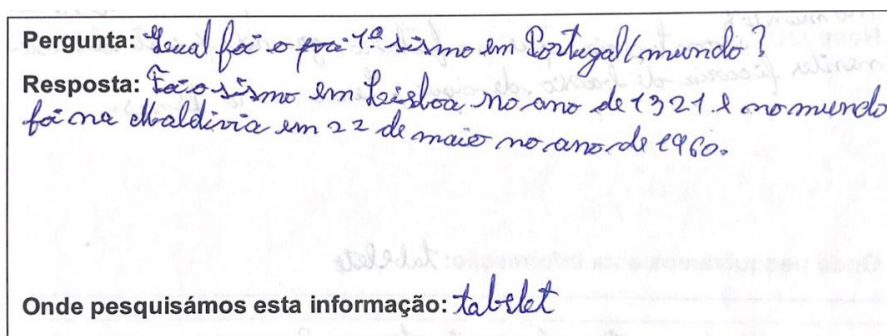 Pergunta: Qual foi o foi 1º sismo em Portugal/mundo?
Resposta: Foi o sismo em Leisboa no ano de 1321 e no mundo
foi na Maldivia em 22 de maio no ano de 1960.
Onde pesquisámos esta informação: tabelet